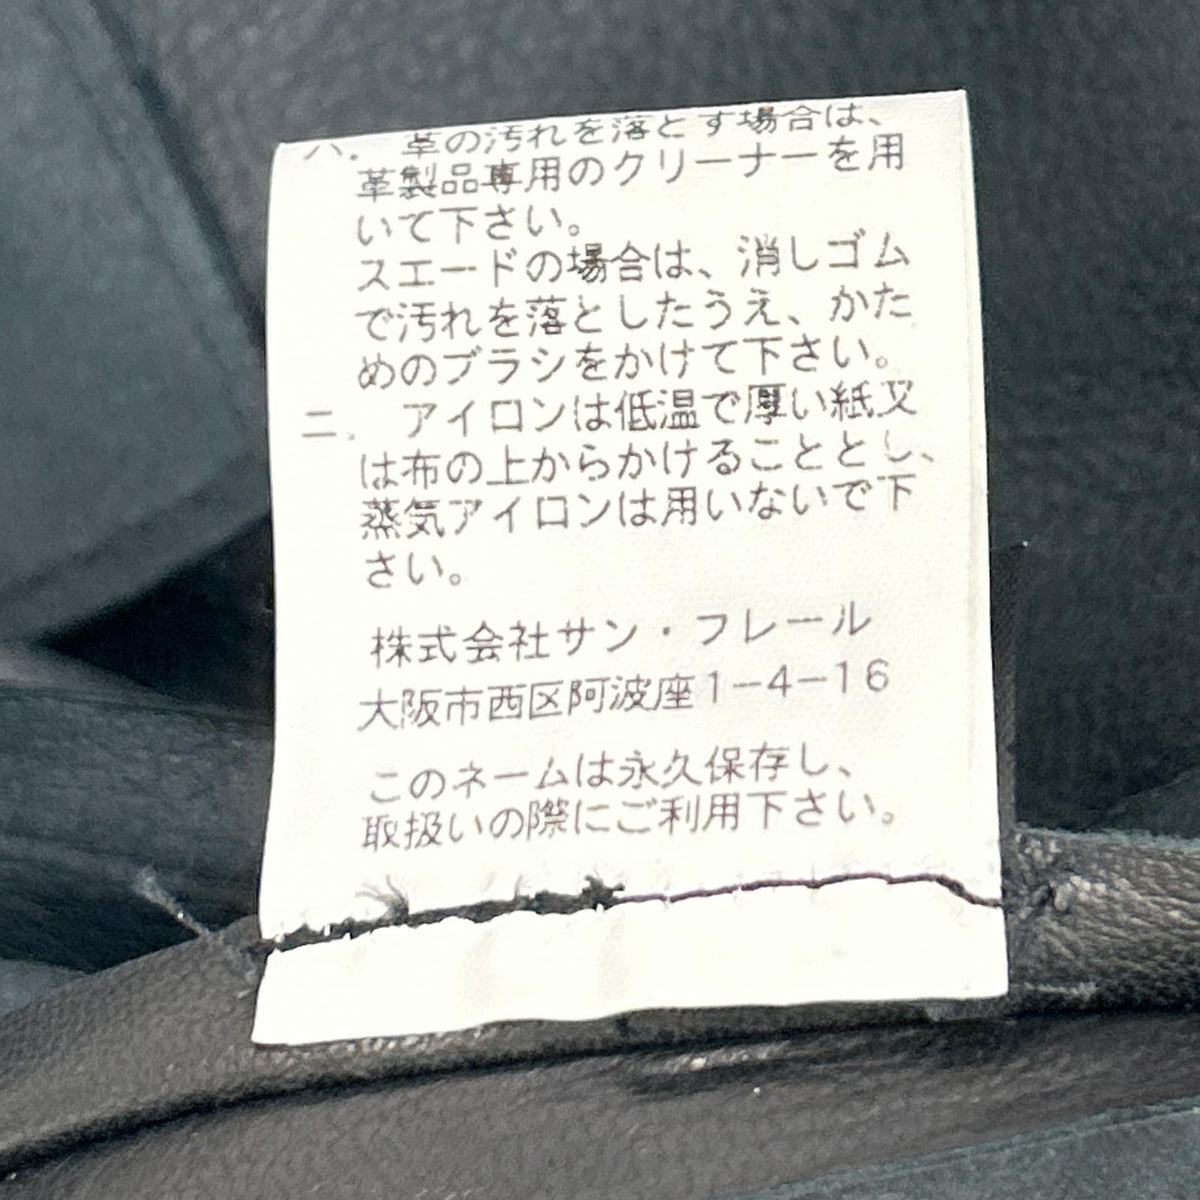 ハ. 革の汚れを落とす場合は、
革製品専用のクリーナーを用
いて下さい。
スエードの場合は、消しゴム
で汚れを落としたうえ、かた
めのブラシをかけて下さい。
ニ. アイロンは低温で厚い紙又
は布の上からかけることとし、
蒸気アイロンは用いないで下
さい。
株式会社サン・フレール
大阪市西区阿波座1-4-16
このネームは永久保存し、
取扱いの際にご利用下さい。